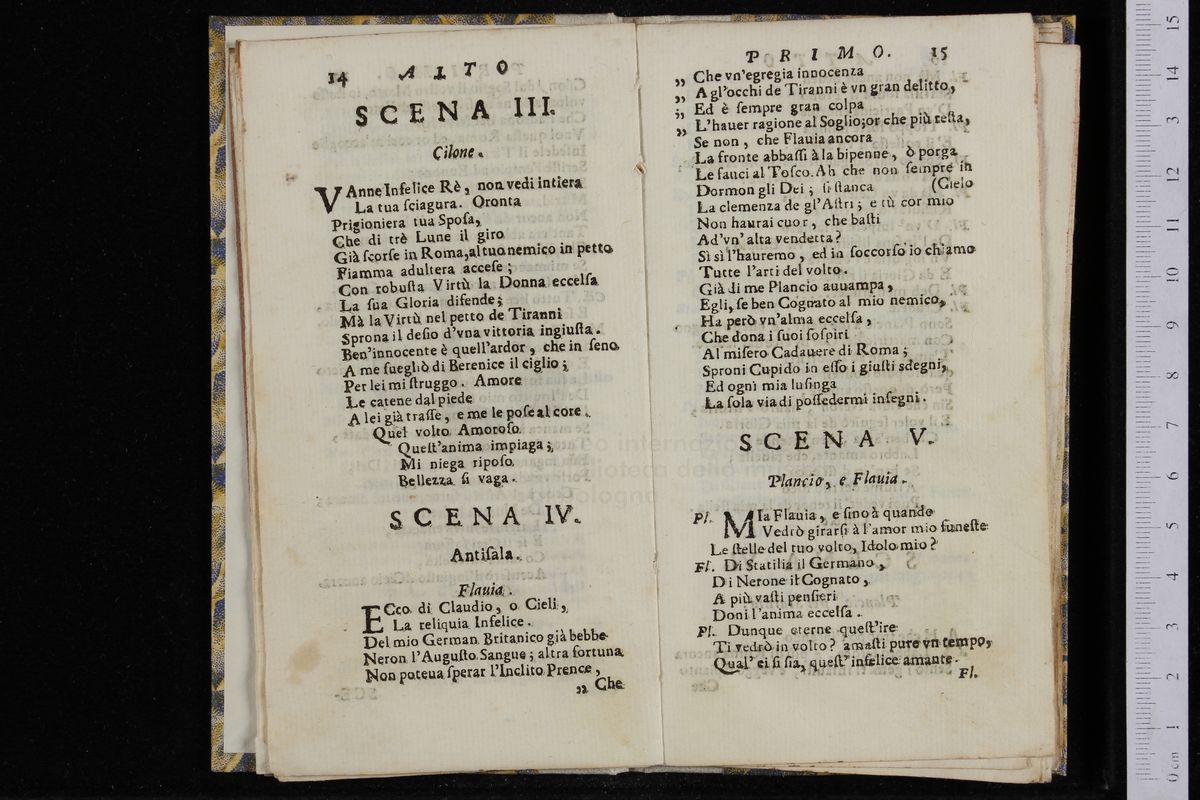 14 ATTO
SCENA III.
Cilone.
VAnne Infelice Rè, non vedi intiera
La tua ſciagura. Oronta
Prigioniera tua Spoſa,
Che di trè Lune il giro
Già ſcorſe in Roma, al tuo nemico in petto
Fiamma adultera acceſe;
Con robuſta Virtù la Donna eccelſa
La ſua Gloria difende;
Mà la Virtù nel petto de Tiranni
Sprona il deſio d'vna vittoria ingiuſta.
Ben'innocente è quell'ardor, che in ſeno
A me ſuegliò di Berenice il ciglio;
Per lei mi ſtruggo. Amore
Le catene dal piede
A lei già traſſe, e me le poſe al core.
Quel volto Amoroſo
Queſt'anima impiaga;
Mi niega ripoſo
Bellezza ſi vaga.
SCENA IV.
Antiſala.
Flauia.
ECco di Claudio, o Cieli,
La reliquia Infelice.
Del mio German Britanico già bebbe
Neron l'Auguſto Sangue; altra fortuna
Non poteua ſperar l'Inclito Prence,
„ Che
PRIMO. 15
„ Che vn'egregia innocenza
„ A gl'occhi de Tiranni è vn gran delitto,
„ Ed è ſempre gran colpa
„ L'hauer ragione al Soglio; or che più reſta,
Se non, che Flauia ancora
La fronte abbaſſi à la bipenne, ò porga
Le fauci al Toſco. Ah che non ſempre in
Dormon gli Dei; ſi ſtanca (Cielo
La clemenza de gl'Aſtri; e tù cor mio
Non haurai cuor, che baſti
Ad'vn' alta vendetta?
Sì sì l'hauremo, ed in ſoccorſo io chiamo
Tutte l'arti del volto.
Già di me Plancio auuampa,
Egli, ſe ben Cognato al mio nemico,
Ha però vn'alma eccelſa,
Che dona i ſuoi ſoſpiri
Al miſero Cadauere di Roma;
Sproni Cupido in eſſo i giuſti sdegni,
Ed ogni mia luſinga
La ſola via di poſſedermi inſegni.
SCENA V.
Plancio, e Flauia.
Pl. MIa Flauia, e ſino à quando
Vedrò girarſi à l'amor mio funeſte
Le ſtelle del tuo volto, Idolo mio?
Fl. Di Statilia il Germano,
Di Nerone il Cognato,
A più vaſti penſieri
Doni l'anima eccelſa.
Pl. Dunque eterne queſt'ire
Ti vedrò in volto? amaſti pure vn tempo,
Qual' ei ſi ſia, queſt' infelice amante.
Fl.